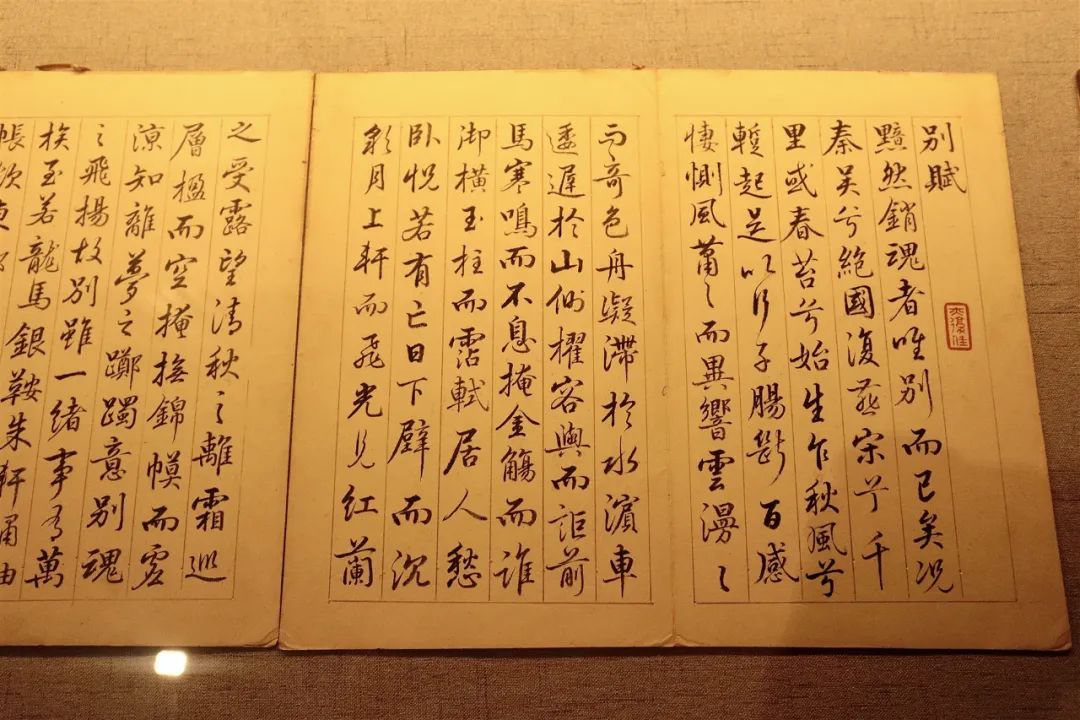 別賦
黯然銷魂者唯別而已矣況
秦吳兮絕國復燕宋兮千
里或春苔兮始生乍秋風兮
蹔起是以行子腸斷百感
悽惻風蕭〻而異響雲漫〻
而奇色舟凝滯於水濱車
逶遲於山側櫂容與而詎前
馬寒鳴而不息掩金觴而誰
御橫玉柱而霑軾居人愁
臥怳若有亡日下壁而沉
彩月上軒而飛光見紅蘭
之受露望清秋之離霜巡
層楹而空掩撫錦幙而虛
涼知離夢之躑躅意別魂
之飛揚故別雖一緒事乃萬
族至若龍馬銀鞍朱軒繡軸
帳飲東都